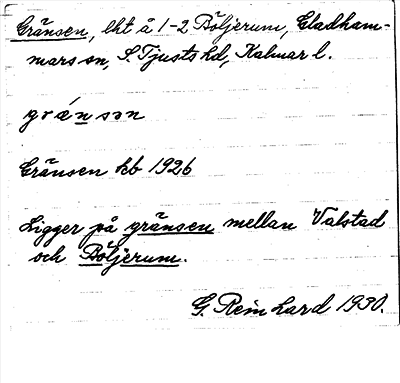 Gränsen, lht å 1-2 Böljerum, Gladham-
mars sn, S. Tjusts hd, Kalmar l.
grä́nsən
Gränsen kb 1926
Ligger på gränsen mellan Valstad
och Böljerum.
G. Reinhard 1930.